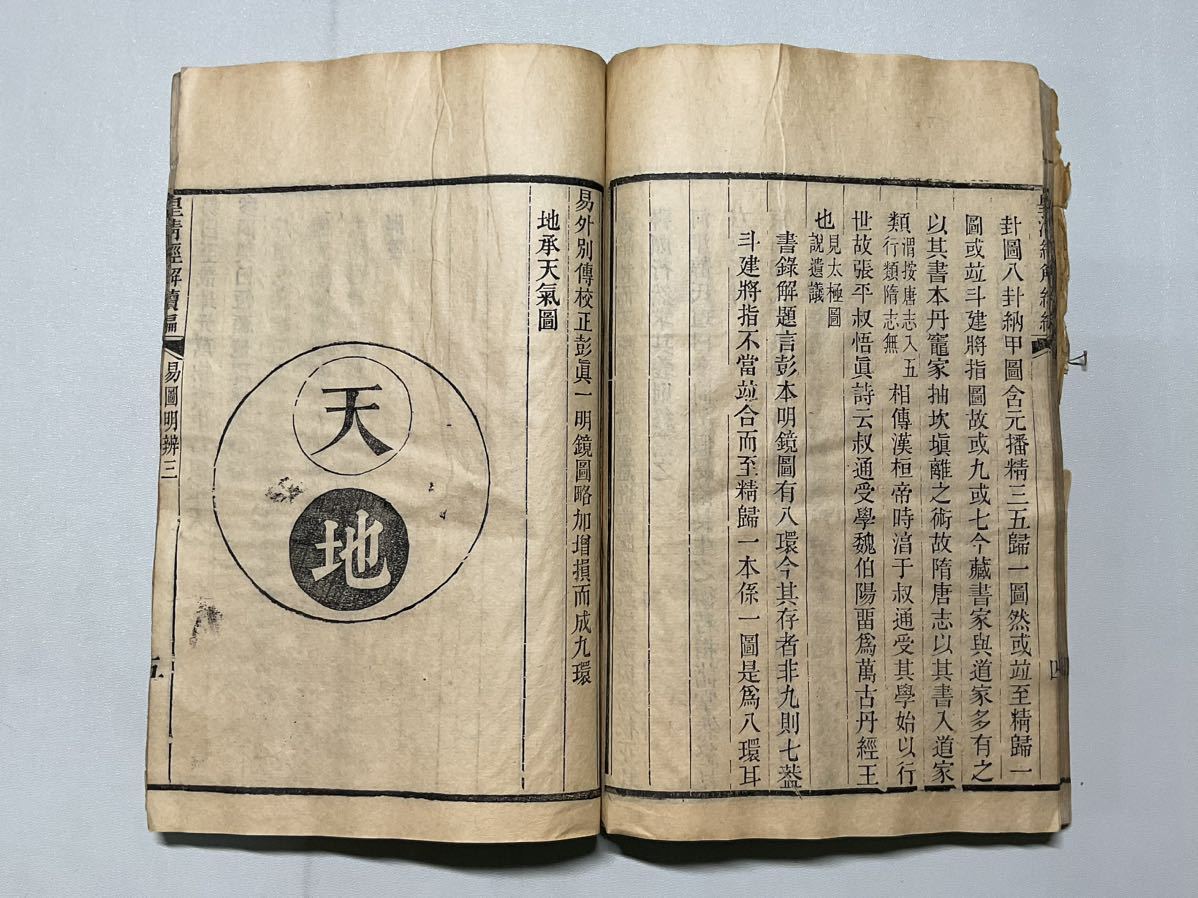 卦圖八卦納甲圖含元播精三五歸一圖然或竝至精歸一
圖或竝斗建將指圖故或九或七今藏書家與道家多有之
以其書本丹竈家抽坎塡離之術故隋唐志以其書入道家
類渭按唐志入五行類隋志無相傳漢桓帝時淯于叔通受其學始以行
世故張平叔悟眞詩云叔通受學魏伯陽畱爲萬古丹經王
也見太極圖說遺議
書錄解題言彭本明鏡圖有八環今其存者非九則七葢
斗建將指不當竝合而至精歸一本係一圖是爲八環耳
易外別傳校正彭眞一明鏡圖略加增損而成九環
地承天氣圖
天
地
皇淸經解續編
易圖明辨三
五